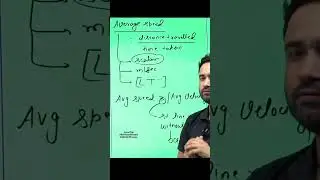 Average speed
distance travelled
time taken
scalar
m/sec
[L T⁻¹]
Avg speed Avg Veloc
st line
without